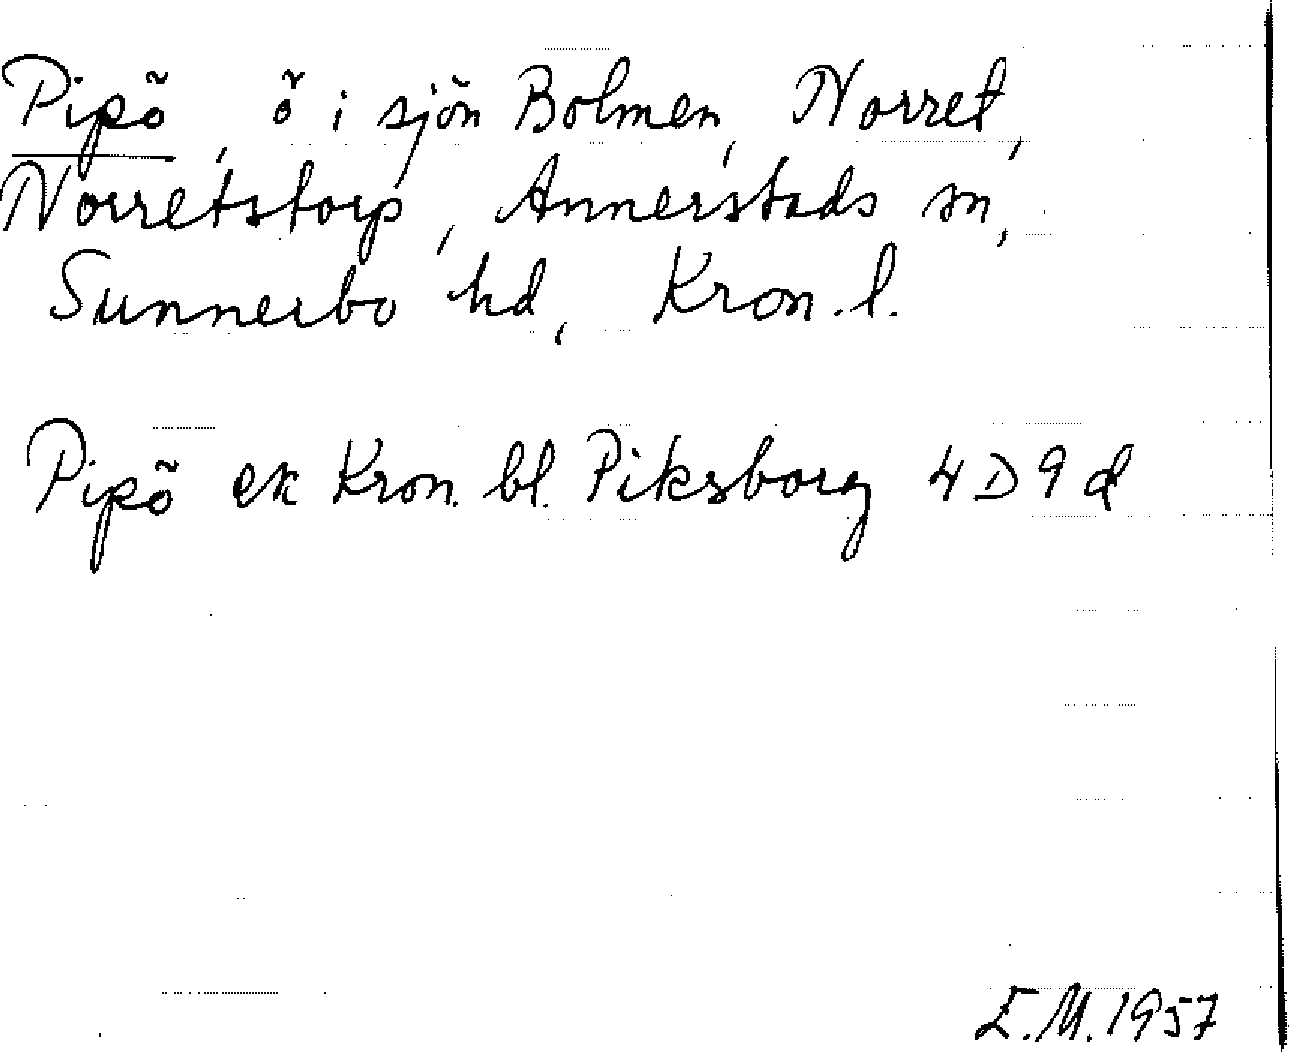 Pipö, ö i sjön Bolmen, Norret,
Norretstorp, Annerstads sn,
Sunnerbo hd, Kron. l.
Pipö ek Kron. bl. Piksborg 4D9d
E.M. 1957